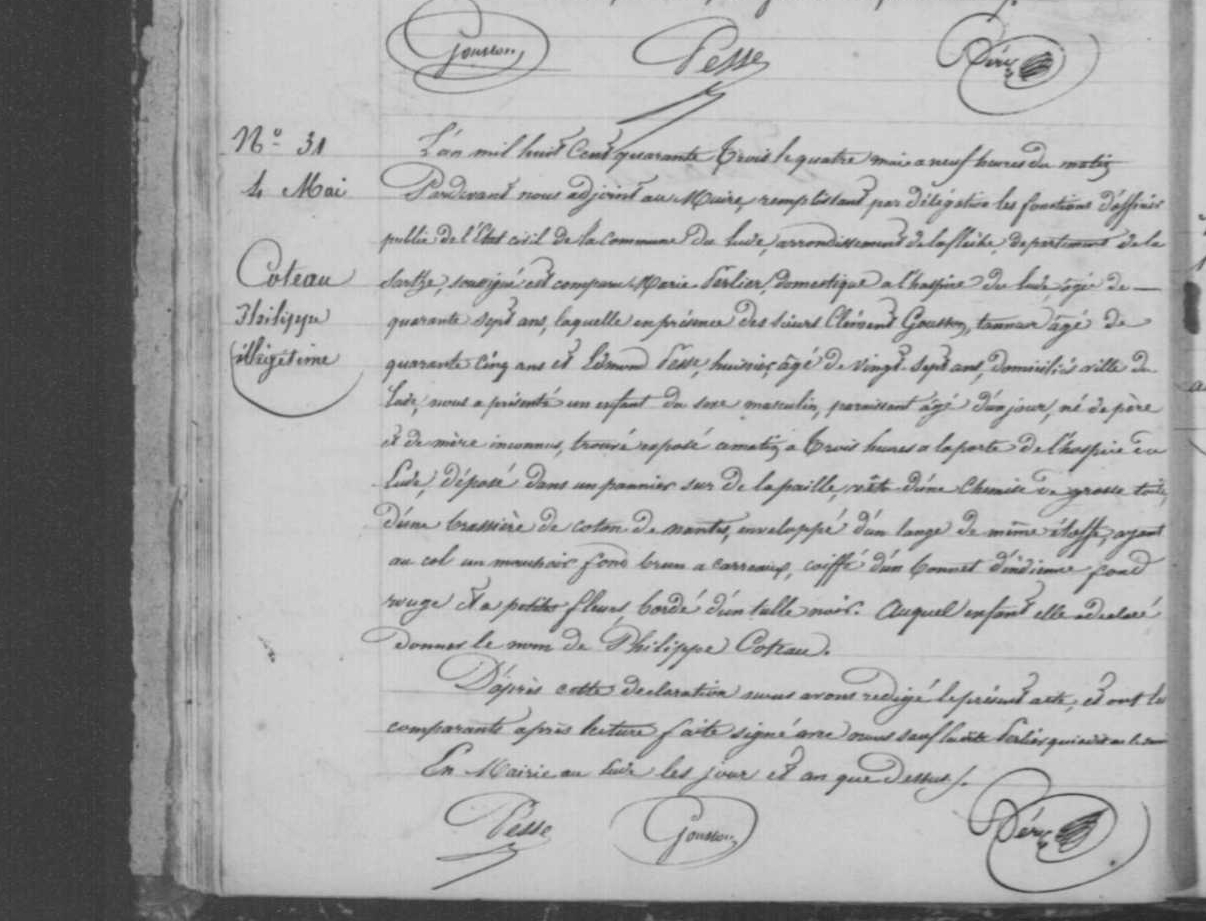 Gousson
Pesse
N.º 31
4 Mai
Coteau
Philippe
illégitime
L'an mil huit Cent quarante trois le quatre mai a neuf heures du matin
Pardevant nous adjoint au Maire, remplissant par délégation les fonctions d'officier
public de l'état civil de la commune du Lude, arrondissement de la flèche, departement de la
Sarthe, soussigné est comparu Marie Terlier, domestique a l'hospice du Lude agée de
quarante sept ans, laquelle en présence des sieurs Clément Gousson, tanneur âgé de
quarante cinq ans et Edmond Pesse, huissier, âgé de vingt-sept ans, domiciliés ville du
Lude, nous a présenté un enfant du sexe masculin, paraissant âgé d'un jour, né de père
et de mère inconnus, trouvé exposé ce matin a trois heures a la porte de l'hospice du
Lude, déposé dans un pannier sur de la paille, vêtu d'une chemise de grosse toile,
d'une brassière de coton de nantes, enveloppé d'un lange de même étoffe, ayant
au col un mouchoir fond brun a carreaux, coiffé d'un bonnet d'indienne fond
rouge et a petites fleurs bordé d'un tulle noir. Auquel enfant elle a declaré
donner le nom de Philippe Coteau.
D'après cette declaration nous avons redigé le présent acte, et ont les
comparants après lecture faite signé avec nous sauf ladite Terlier qui a dit ne le
En Mairie au Lude les jour et an que dessus.
Pesse
Gousson